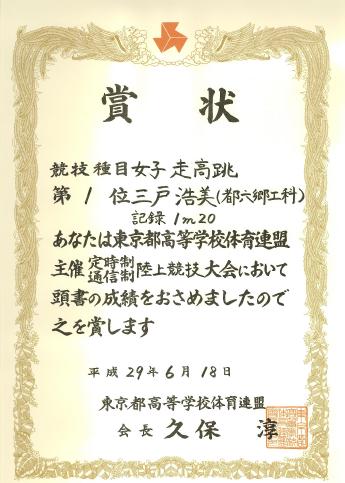 賞状
競技種目女子走高跳
第1位三戸浩美(都六郷工科)
記録1m20
あなたは東京都高等学校体育連盟
主催定時制通信制陸上競技大会において
頭書の成績をおさめましたので
之を賞します
平成29年6月18日
東京都高等学校体育連盟
会長久保淳